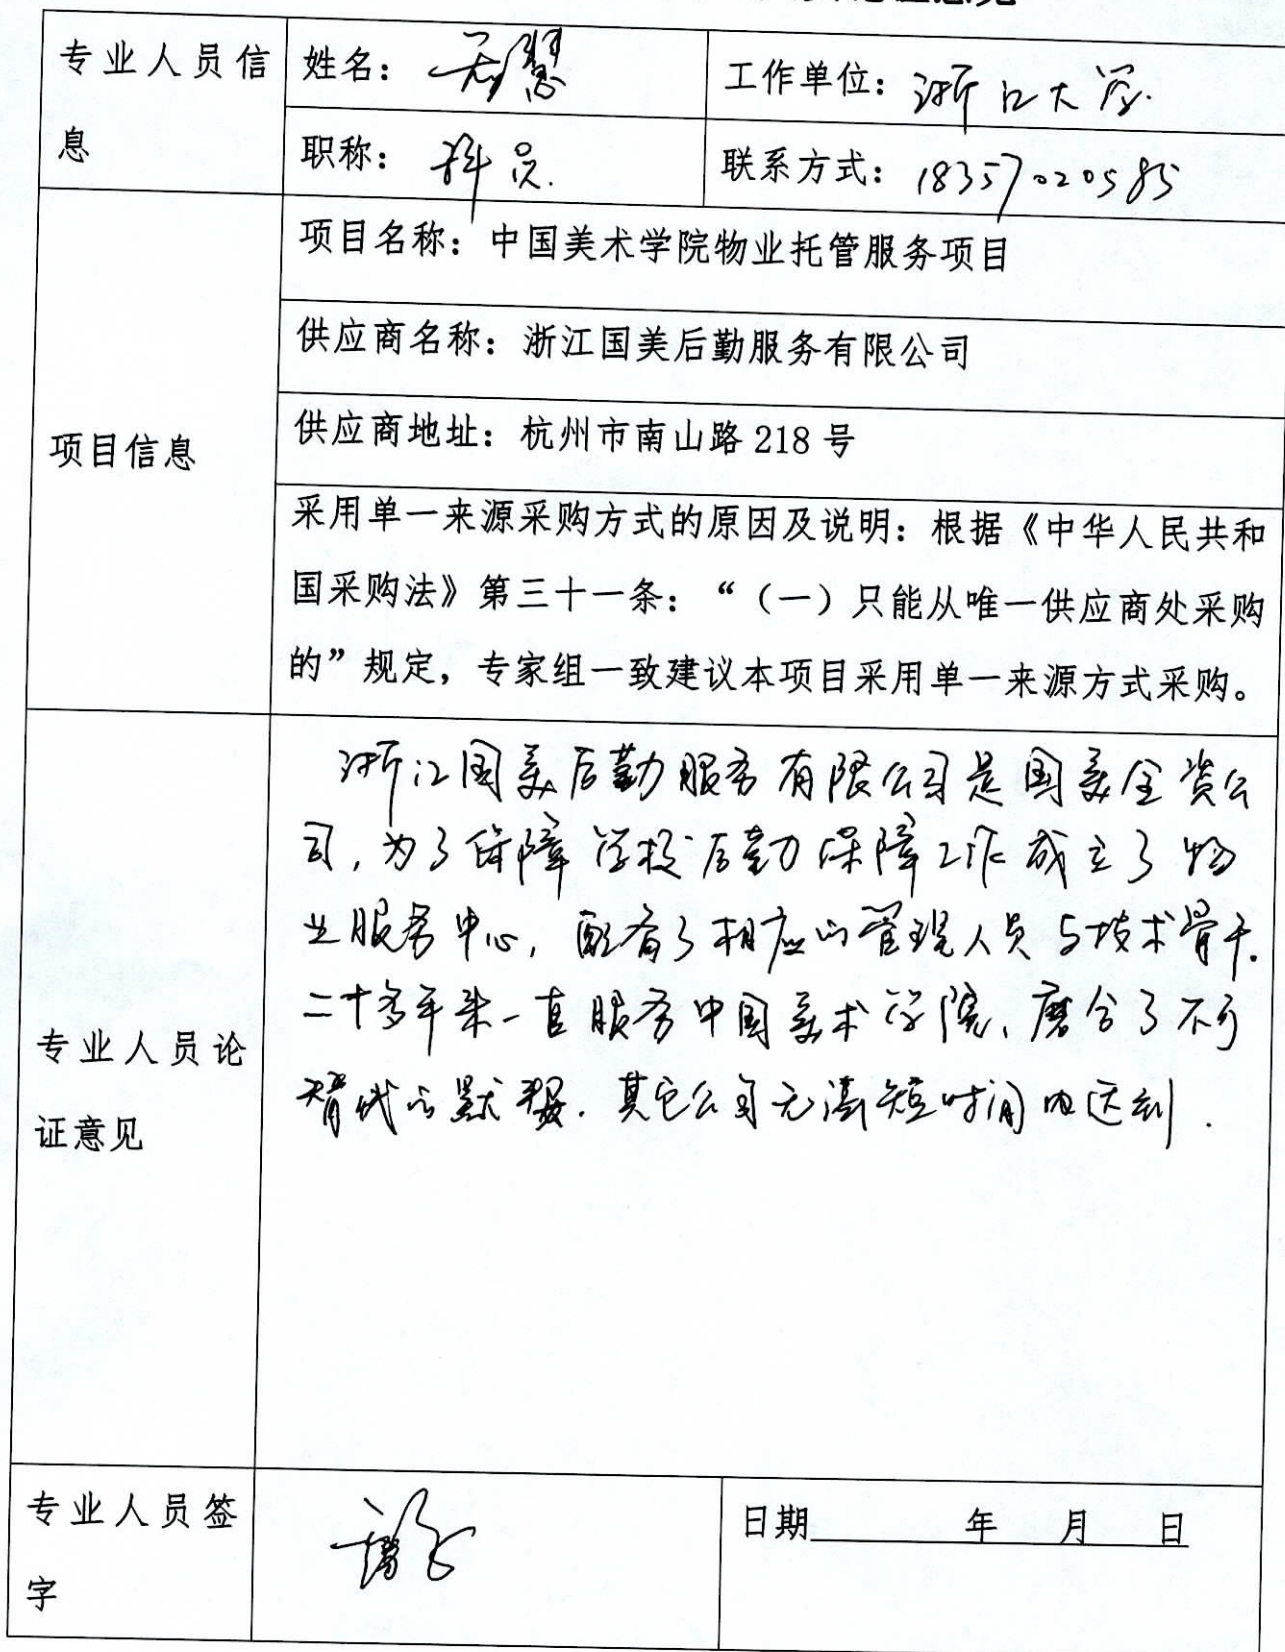 专业人员信息
姓名：
工作单位：浙江大学.
职称：科员.
联系方式：18357020585
项目信息
项目名称：中国美术学院物业托管服务项目
供应商名称：浙江国美后勤服务有限公司
供应商地址：杭州市南山路 218 号
采用单一来源采购方式的原因及说明：根据《中华人民共和
国采购法》第三十一条：“（一）只能从唯一供应商处采购
的”规定，专家组一致建议本项目采用单一来源方式采购。
专业人员论
证意见
浙江国美后勤服务有限公司是国美全资公
司，为了保障学校后勤保障工作成立了物
业服务中心，配备了相应的管理人员与技术骨干.
二十多年来一直服务中国美术学院、磨合了不可
替代的默契. 其它公司无法短时间内达到.
专业人员签
字
日期 年 月 日